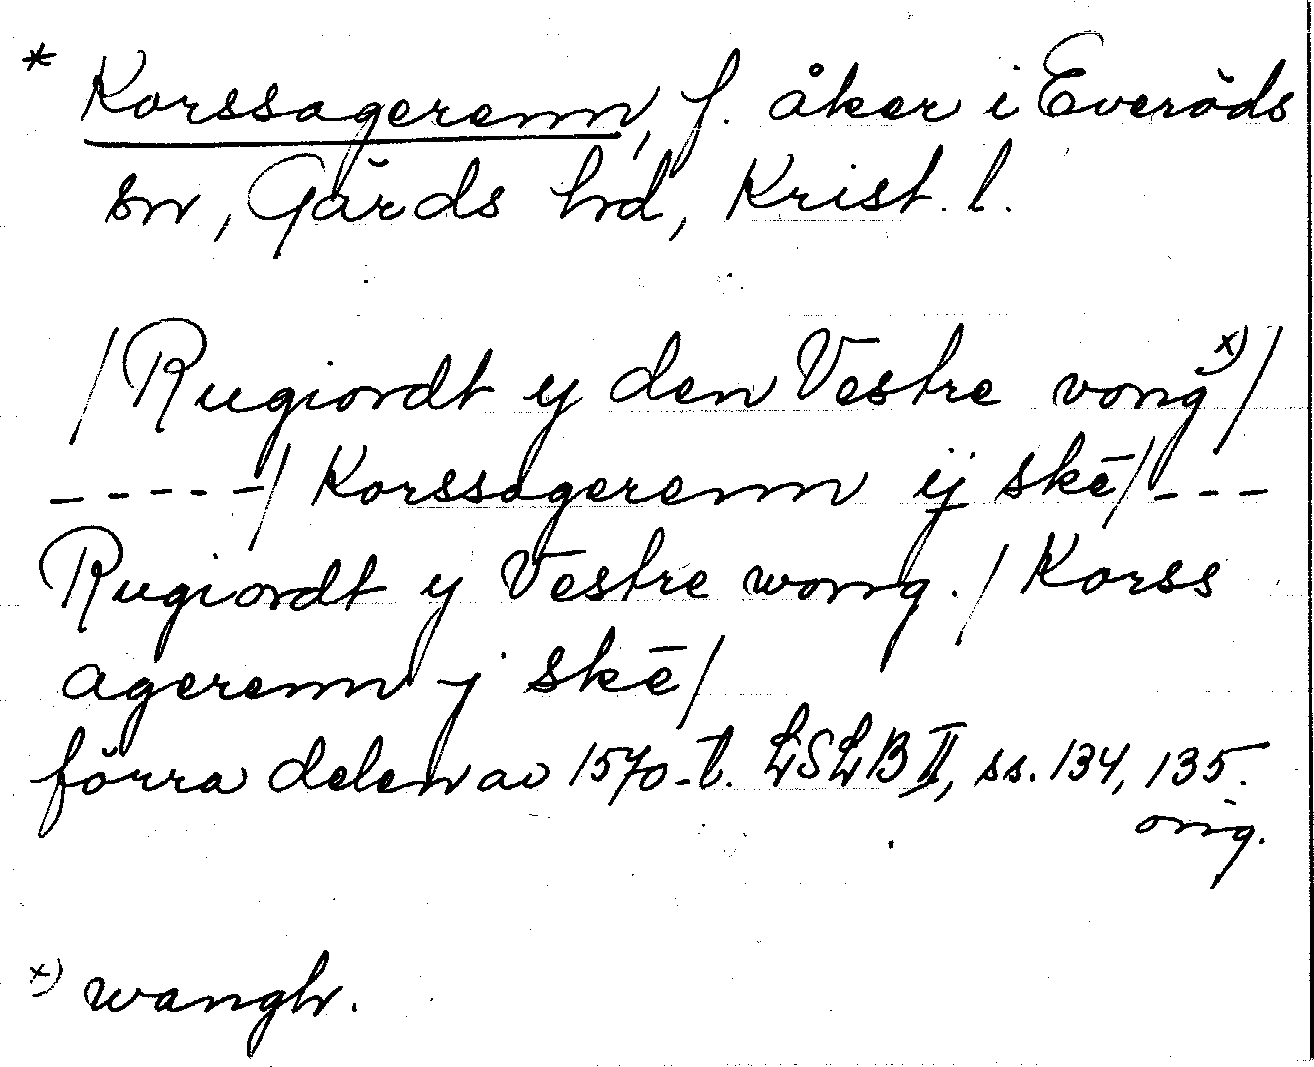 * Korssagerenn, f. åker i Everöds
sn, Gärds hd, Krist. l.
/ Rugiordt y den Vestre vong x) /
- - - - - / Korssagerenn ij skē / - - -
Rugiordt y Vestre wong. / Korss
agerenn j skē /
förra delen av 1570-t. LSLB II, ss. 134, 135.
orig.
x) wangh.